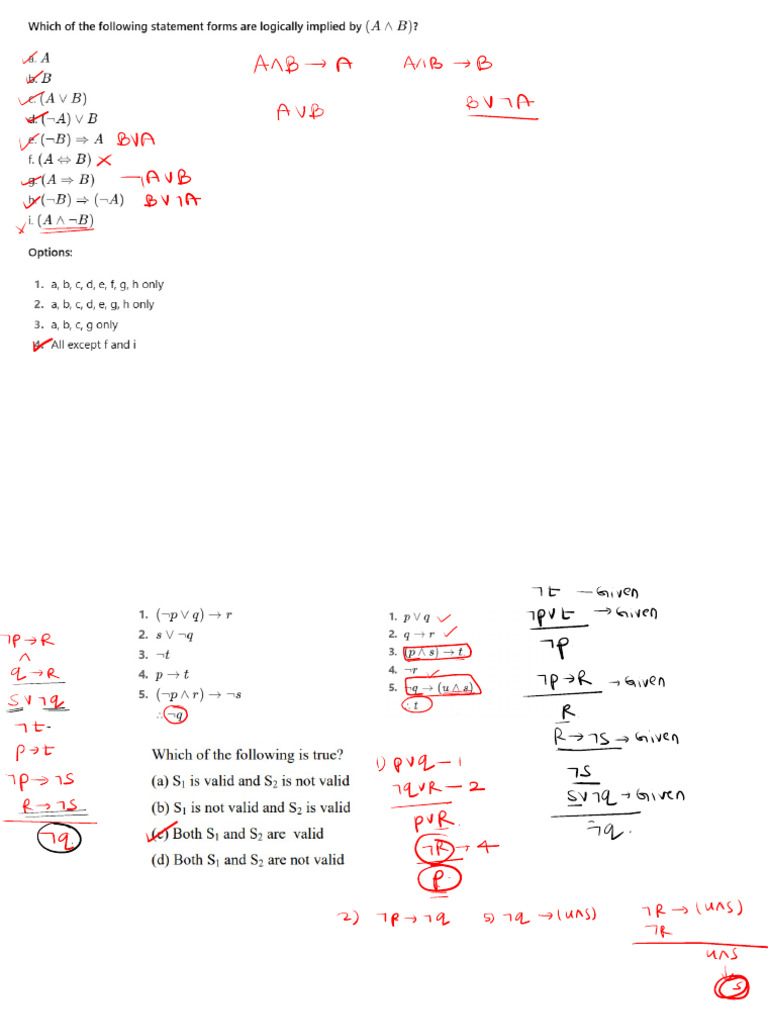 Which of the following statement forms are logically implied by (A ∧ B)?
a. A
b. B
c. (A ∨ B)
d. (¬A) ∨ B
e. (¬B) ⇒ A B∨A
f. (A ⇔ B) ×
g. (A ⇒ B) ¬A∨B
h. (¬B) ⇒ (¬A) B∨¬A
i. (A ∧ ¬B)
A∧B → A A∧B → B
A∨B B∨¬A
Options:
1. a, b, c, d, e, f, g, h only
2. a, b, c, d, e, g, h only
3. a, b, c, g only
4. All except f and i
¬P→R
∧
q→R
S∨¬q
¬t
p→t
¬p→¬s
R→¬s
¬q
1. (¬p ∨ q) → r
2. s ∨ ¬q
3. ¬t
4. p → t
5. (¬p ∧ r) → ¬s
∴ ¬q
1. p ∨ q
2. q → r
3. (p ∧ s) → t
4. ¬r
5. ¬q → (u ∧ s)
∴ t
¬t — Given
¬p∨t → Given
¬p
¬p→R → Given
R
R→¬s → Given
¬s
S∨¬q → Given
¬q.
Which of the following is true?
(a) S1 is valid and S2 is not valid
(b) S1 is not valid and S2 is valid
(c) Both S1 and S2 are valid
(d) Both S1 and S2 are not valid
1) p∨q — 1
¬q∨R — 2
p∨R
¬R → 4
p
2) ¬R→¬q 5) ¬q →(u∧s)
¬R → (u∧s)
¬R
u∧s
↓
s